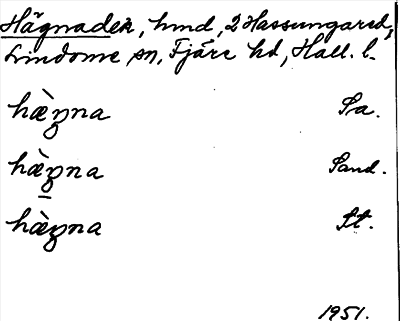 Hägnaden, hmd, 2 Hassungared,
Lindome sn, Fjäre hd, Hall. l.
hæ̀ŋna Sa.
hæ̀ŋna Sand.
hæ̀ŋna St.
1951.